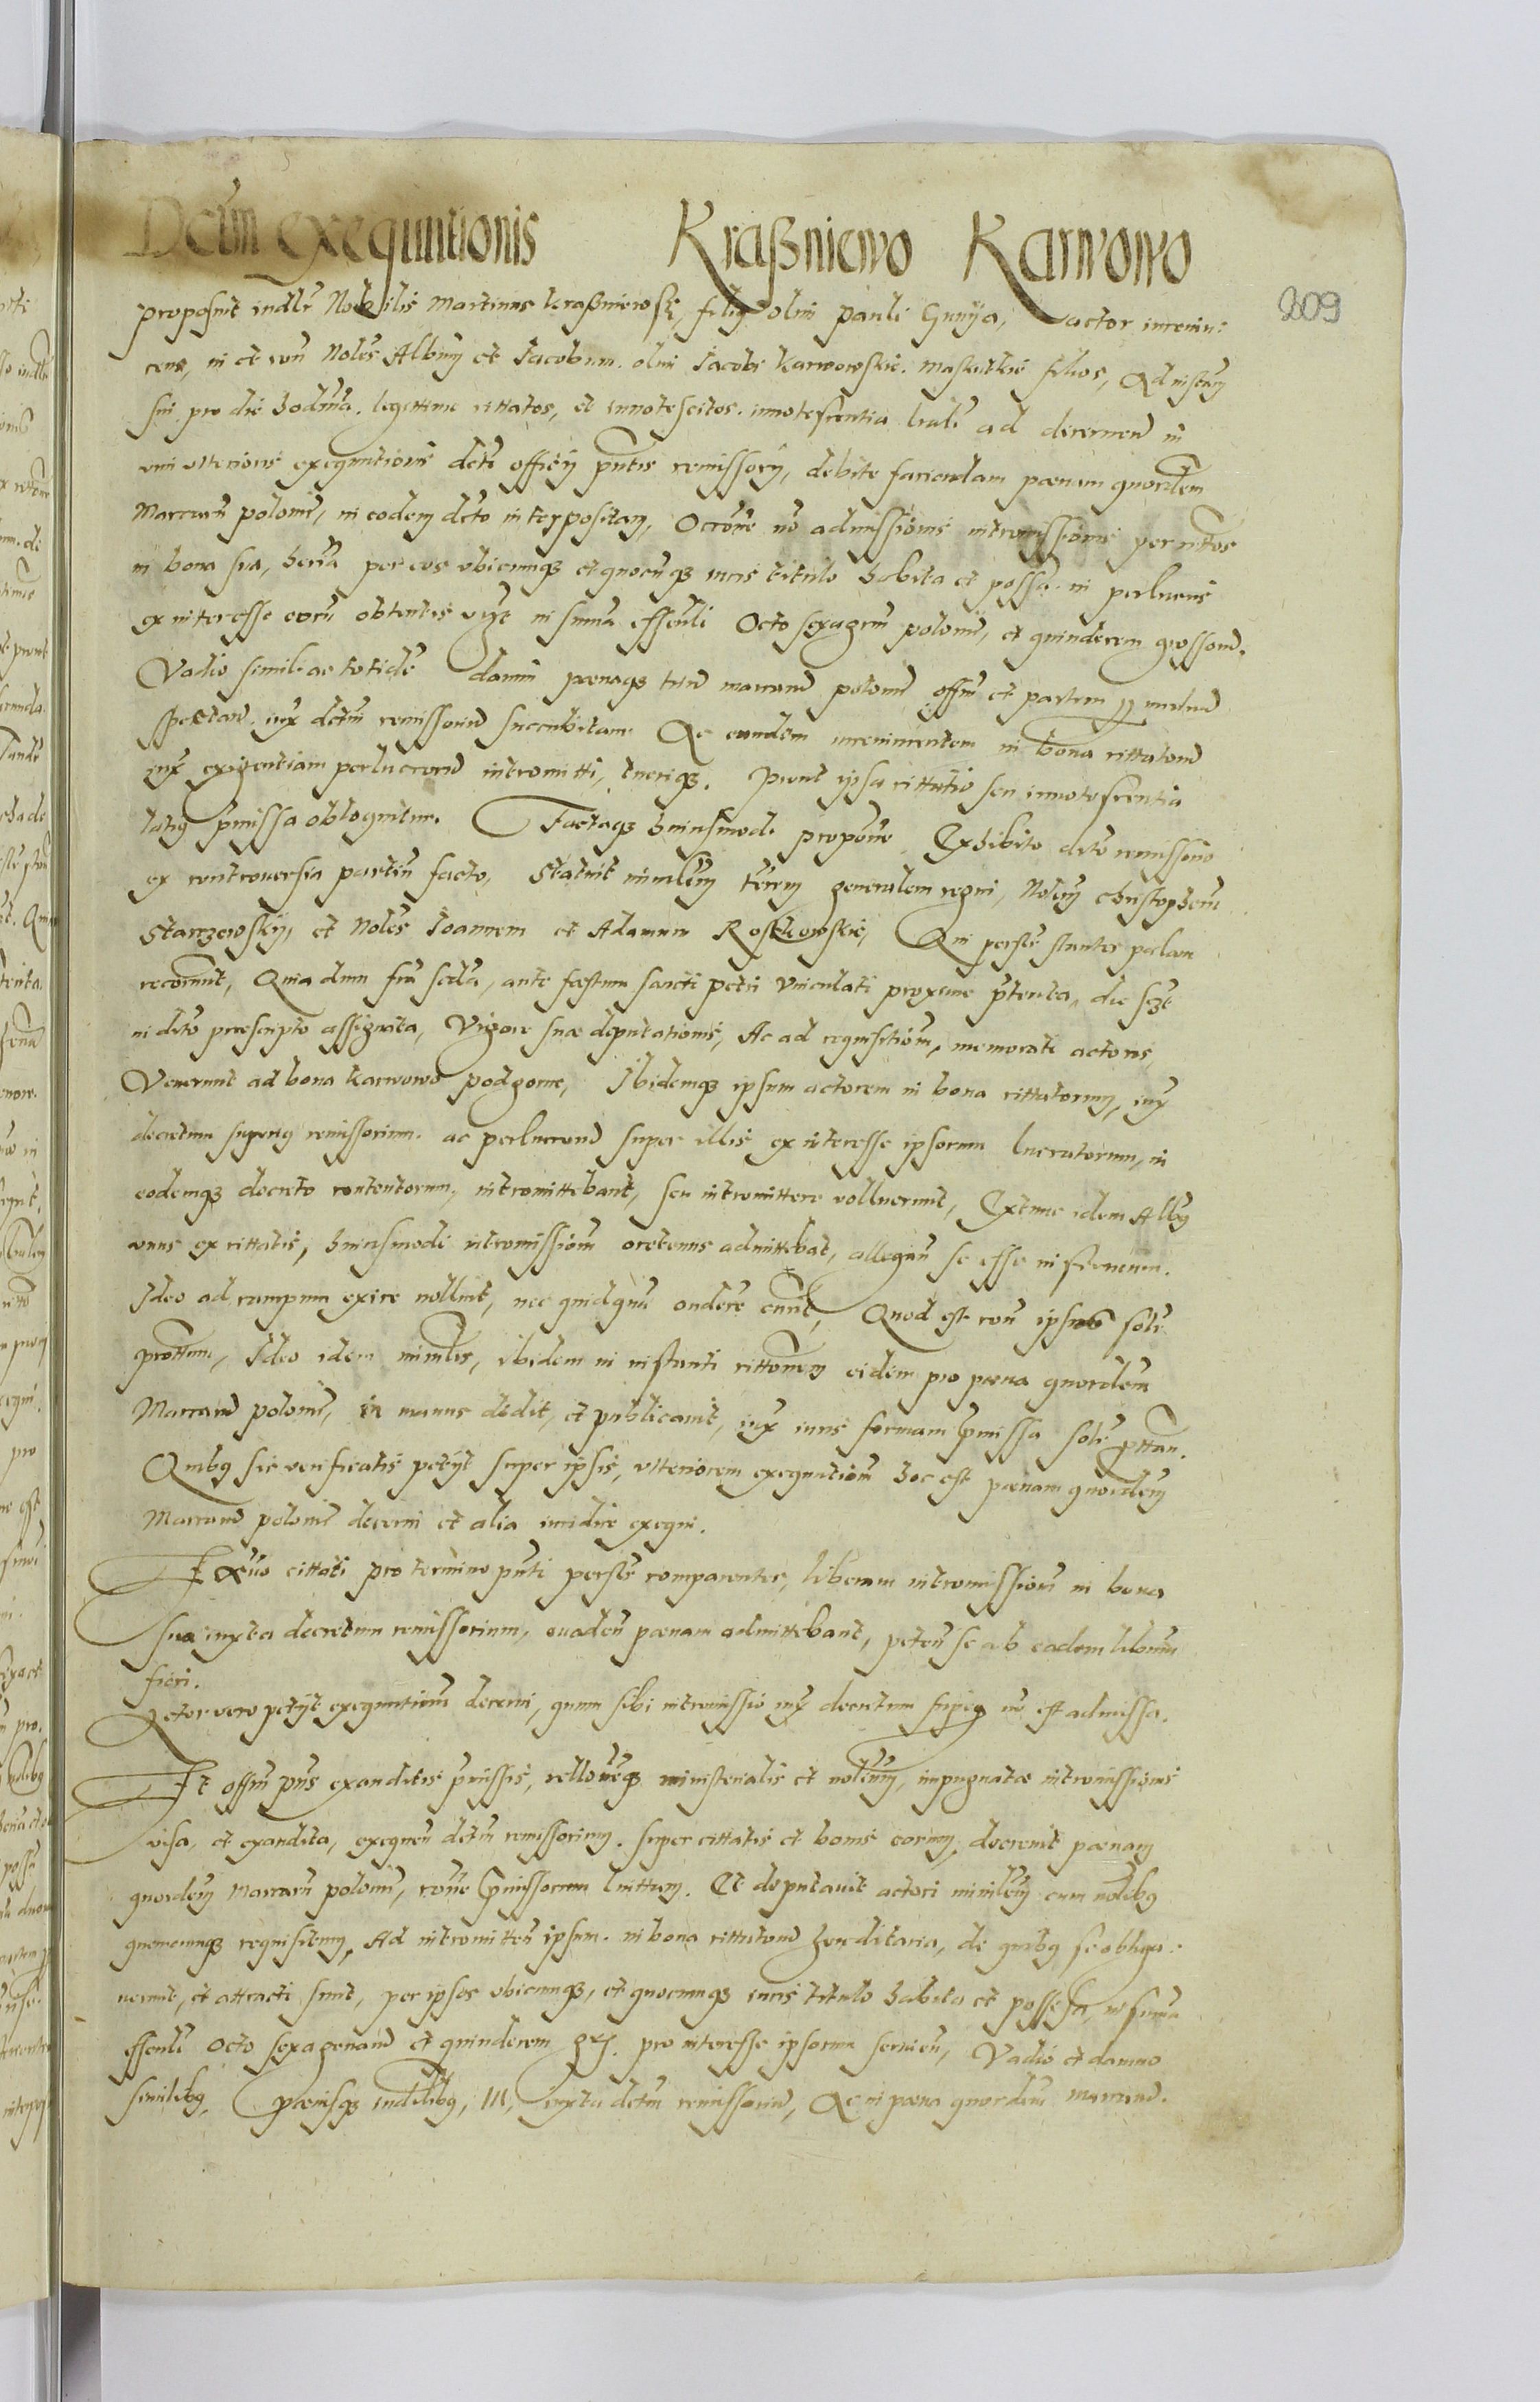 Dcūm exequutionis Kraßniewo Karwowo
209
proposuit iudlr Nobilis Martinus Kraßniewsky, filiꝰ olim Pauli Gunÿa, actor inceniu:
cens, in et con Nobles Albm et Jacobum. olim Jacobi Karwowskie. Maskutkie filios, Ad instam
sui pro die hodrna. legittime cittatos, et innotescitos. innotescentia lrali ad decernend in
vim ulterioris exequutionis dcti officij pntis remissorij, debite faciendam pœnam quordem
Marcarum polonic, in eodem dcto interpositam, Occone no admissionis intromissionis per cittos
in bona sua, hered per eos ubicumqꝫ et quocunqꝫ iuris titulo habita et possa. in perlucris
ex interesse eorum obtentis vzt in suma essenli Octo sexagen polonic, et quindecem grossorum.
Vadio simili ac totide damni pœnaqꝫ trium marcarum polonic offm et partem
spectan. iux dctm remissorium succubitam. Ac eundem incenientem in bona cittatorum
iux exigentiam perlucrorum intromitti, tueriqꝫ. Prout ipsa cittatio seu innotescentia
latiꝰ pmissa obloquitur. Factaqꝫ huiusmodi propone. Exhibito dcto remissorio
ex controversia partium facto, Statuit minilem terrm generalem regni, Nobem Christophorum
Starzewskÿ, et Nobles Joannem et Adamum Roskowskie, Qui perste stantes palam
recorunt, Quia dum fria secda, ante festum sancti petri Vinculati proxime pterita, die szt
in dcto prescripto assignata, Vigore suæ deputationis, Ac ad requisitiom, memorati actoris,
Venerunt ad bona Karwowo podgorne, Ibidemqꝫ ipsum actorem in bona cittatorum, iux
decretum superiꝰ remissorium. ac perlucrorum super illis ex interesse ipsorum lucratorum, in
eodemqꝫ decreto contentorum, intromittebant, seu intromittere volluerunt, Extunc idem Albꝰ
unus ex cittatis, huiusmodi intromissiom oretenus admittebat, allegan se esse
Ideo ad campum exire nolluit, nec quidquam ondere curit, Quod est con ipsum solr
protstum, Ideo idem minilis, ibidem in instanti cittonem eidem pro pœna quordecim
Marcarum polonic, in manus dedit, et publicavit, iux iuris formam pmissa solr pttan.
Quibꝰ sic verificatis petÿt super ipsis, ulteriorem exequutiom hoc est pœnam quordem
Marcarum polonic decerni et alia iuridice exequi.
Exno cittati pro termino pnti perste comparentes, liberam intromissiom in bona
sua iuxta decretum remissorium, evaden pœnam admittebant, peten se ab eadem liberum
fieri.
Actor vero petÿt exequutiom decerni, quum sibi intromissio iux decretum supeꝰ no est admissa.
Et offm pns exauditis pmissis, relloneqꝫ ministerialis et nobilium, impugnatæ intromissionis
visa, et exaudita, exequen dctm remissorium. super cittatis et bonis eorum, decrevit pœnam
quordem Marcarum polonic, rone pmissorum luittum. Et deputavit actori minilem cum nobilibꝰ
quemcumqꝫ requisitum, Ad intromitten ipsum. in bona cittatorum hereditaria, de quibꝰ se obliga:
verunt, et attracti sunt, per ipsos ubicumqꝫ, et quocumqꝫ iuris titulo habita et possessa, in suma
essenli Octo sexagenarum et quindecem grs. pro interesse ipsorum servien, Vadio et damno
similibꝰ, Pœnisqꝫ iudlibꝰ, III, iuxta dctm remissorium, Ac in pœna quordem marcarum.